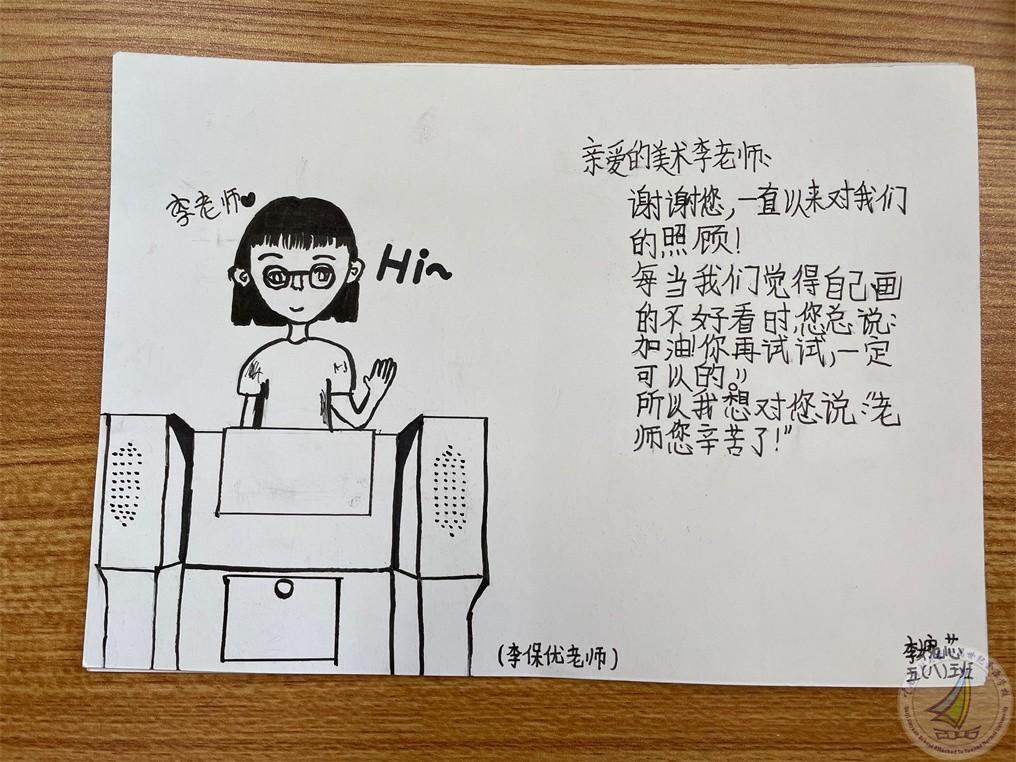 李老师
Hi~
亲爱的美术李老师:
谢谢您,一直以来对我们
的照顾!
每当我们觉得自己画
的不好看时,您总说:
加油!你再试试,一定
可以的。”
所以我想对您说:“老
师您辛苦了!”
(李保优老师)
五(八)班